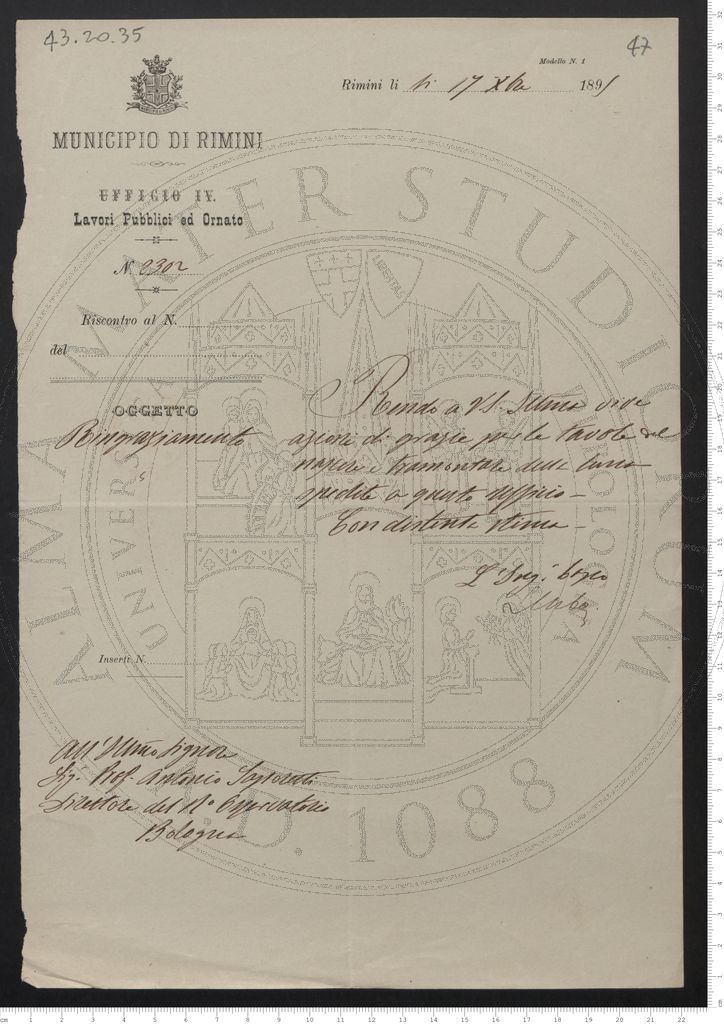 43.20.35
47
Modello N. 1
Rimini li li 17 Xbre 1891
MUNICIPIO DI RIMINI
UFFICIO IV.
Lavori Pubblici ed Ornato
N. 2302
Riscontro al N.
del
OGGETTO
Ringraziamento
Rendo a V.S. Illma vive
azioni di grazie per le tavole del
nascere e tramontare della luna
spedite a questo Ufficio –
Con distinta stima –
L'Ing. Capo
Inserti N.
All'Illmo Signore
Sig. Prof. Antonio
Direttore del Rº Osservatorio
Bologna
ALMA MATER STUDIORUM
A.D. 1088
LIBERTAS